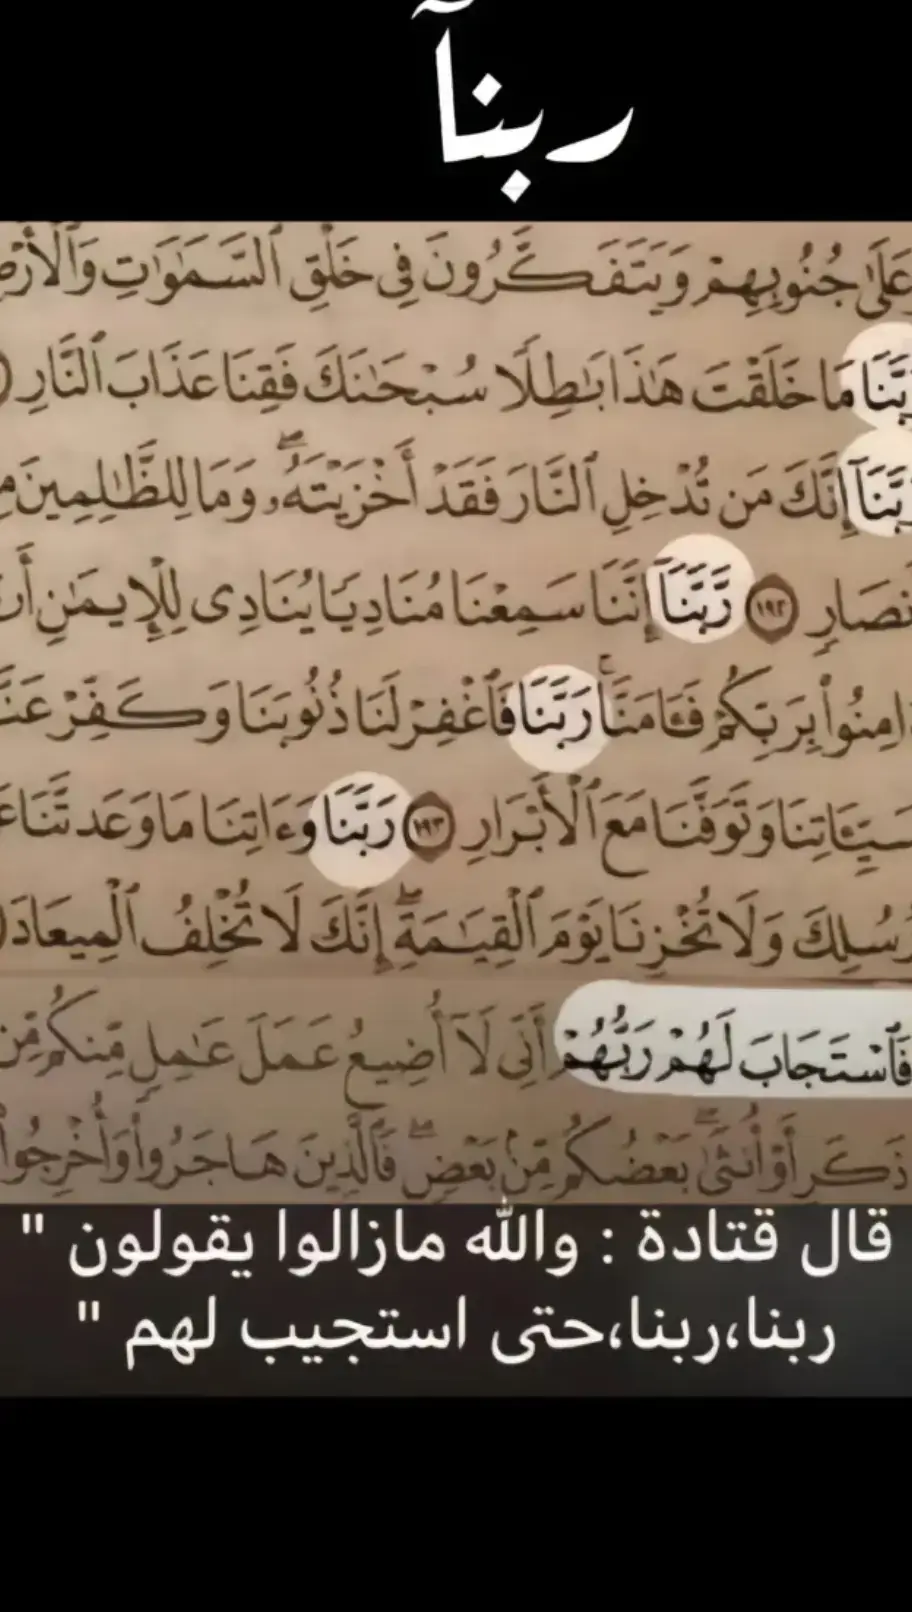 ربنآ
عَلَىٰ جُنُوبِهِمْ وَيَتَفَكَّرُونَ فِى خَلْقِ ٱلسَّمَٰوَٰتِ وَٱلْأَرْضِ
رَبَّنَا مَا خَلَقْتَ هَٰذَا بَٰطِلًا سُبْحَٰنَكَ فَقِنَا عَذَابَ ٱلنَّارِ
رَبَّنَآ إِنَّكَ مَن تُدْخِلِ ٱلنَّارَ فَقَدْ أَخْزَيْتَهُۥ ۖ وَمَا لِلظَّٰلِمِينَ
أَنصَارٍ ١٩٢ رَّبَّنَآ إِنَّنَا سَمِعْنَا مُنَادِيًا يُنَادِى لِلْإِيمَٰنِ أَنْ
ءَامِنُوا۟ بِرَبِّكُمْ فَـَٔامَنَّا ۚ رَبَّنَا فَٱغْفِرْ لَنَا ذُنُوبَنَا وَكَفِّرْ عَنَّا
سَيِّـَٔاتِنَا وَتَوَفَّنَا مَعَ ٱلْأَبْرَارِ ١٩٣ رَبَّنَا وَءَاتِنَا مَا وَعَدتَّنَا
رُسُلِكَ وَلَا تُخْزِنَا يَوْمَ ٱلْقِيَٰمَةِ ۖ إِنَّكَ لَا تُخْلِفُ ٱلْمِيعَادَ
فَٱسْتَجَابَ لَهُمْ رَبُّهُمْ أَنِّى لَآ أُضِيعُ عَمَلَ عَٰمِلٍ مِّنكُم مِّن
ذَكَرٍ أَوْ أُنثَىٰ ۖ بَعْضُكُم مِّنۢ بَعْضٍ ۖ فَٱلَّذِينَ هَاجَرُوا۟ وَأُخْرِجُوا۟
قال قتادة : والله مازالوا يقولون "
ربنا،ربنا،حتى استجيب لهم "